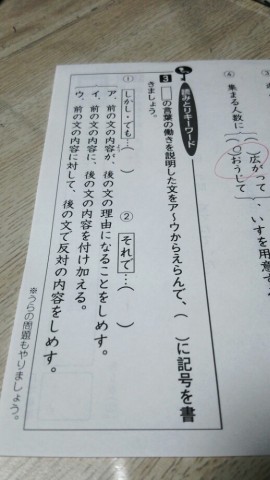 ③
④
集まる人数に（ 広がって
○おうじて ）、いすを用意す
読みとりキーワード
3 □の言葉の働きを説明した文をア〜ウからえらんで、（　）に記号を書
きましょう。
① しかし・ても…（　） ② それで…（　）
ア、前の文の内容が、後の文の理由になることをしめす。
イ、前の文の内容に、後の文の内容を付け加える。
ウ、前の文の内容に対して、後の文で反対の内容をしめす。
※うらの問題もやりましょう。